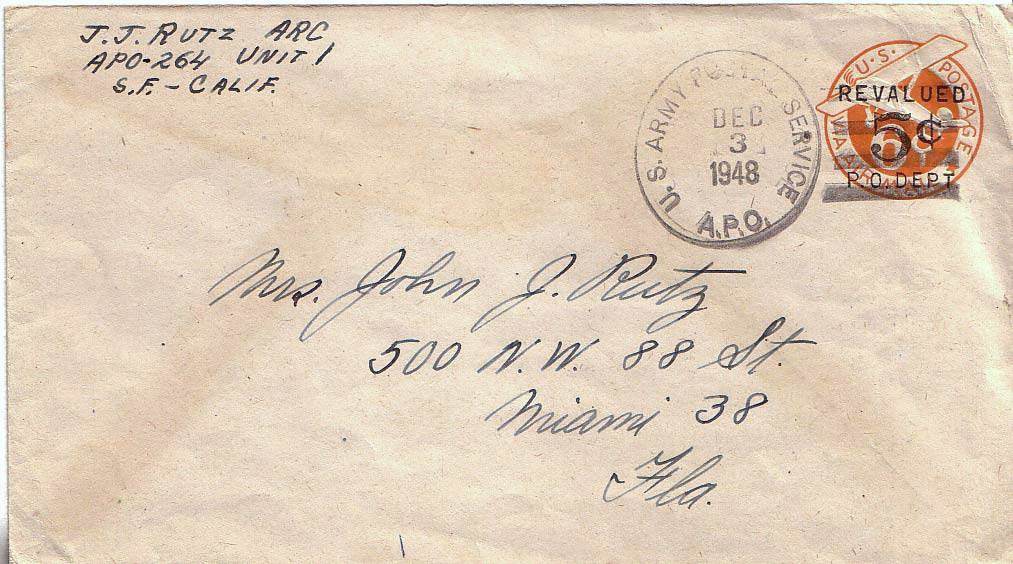 J. J. RUTZ ARC
APO-264 UNIT 1
S.F. - CALIF.
U.S. ARMY POSTAL SERVICE
DEC
3
1948
A.P.O.
U.S. POSTAGE
VIA AIR
REVALUED
5¢
P.O. DEPT
Mrs. John J. Rutz
500 N.W. 88 St.
Miami 38
Fla.